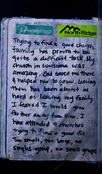 NorthRidge
Trying to find a good church
family has proven to be
quite a difficult task. My
church in Louisiana was
amazing. God saved me there
& helped me to grow. Leaving
them has been almost as
hard as leaving my family.
I feared I would grow
farther away from Him. I
have attended 4 churches
trying to find a good fit.
Too small, too large, no
singles group, no small groups